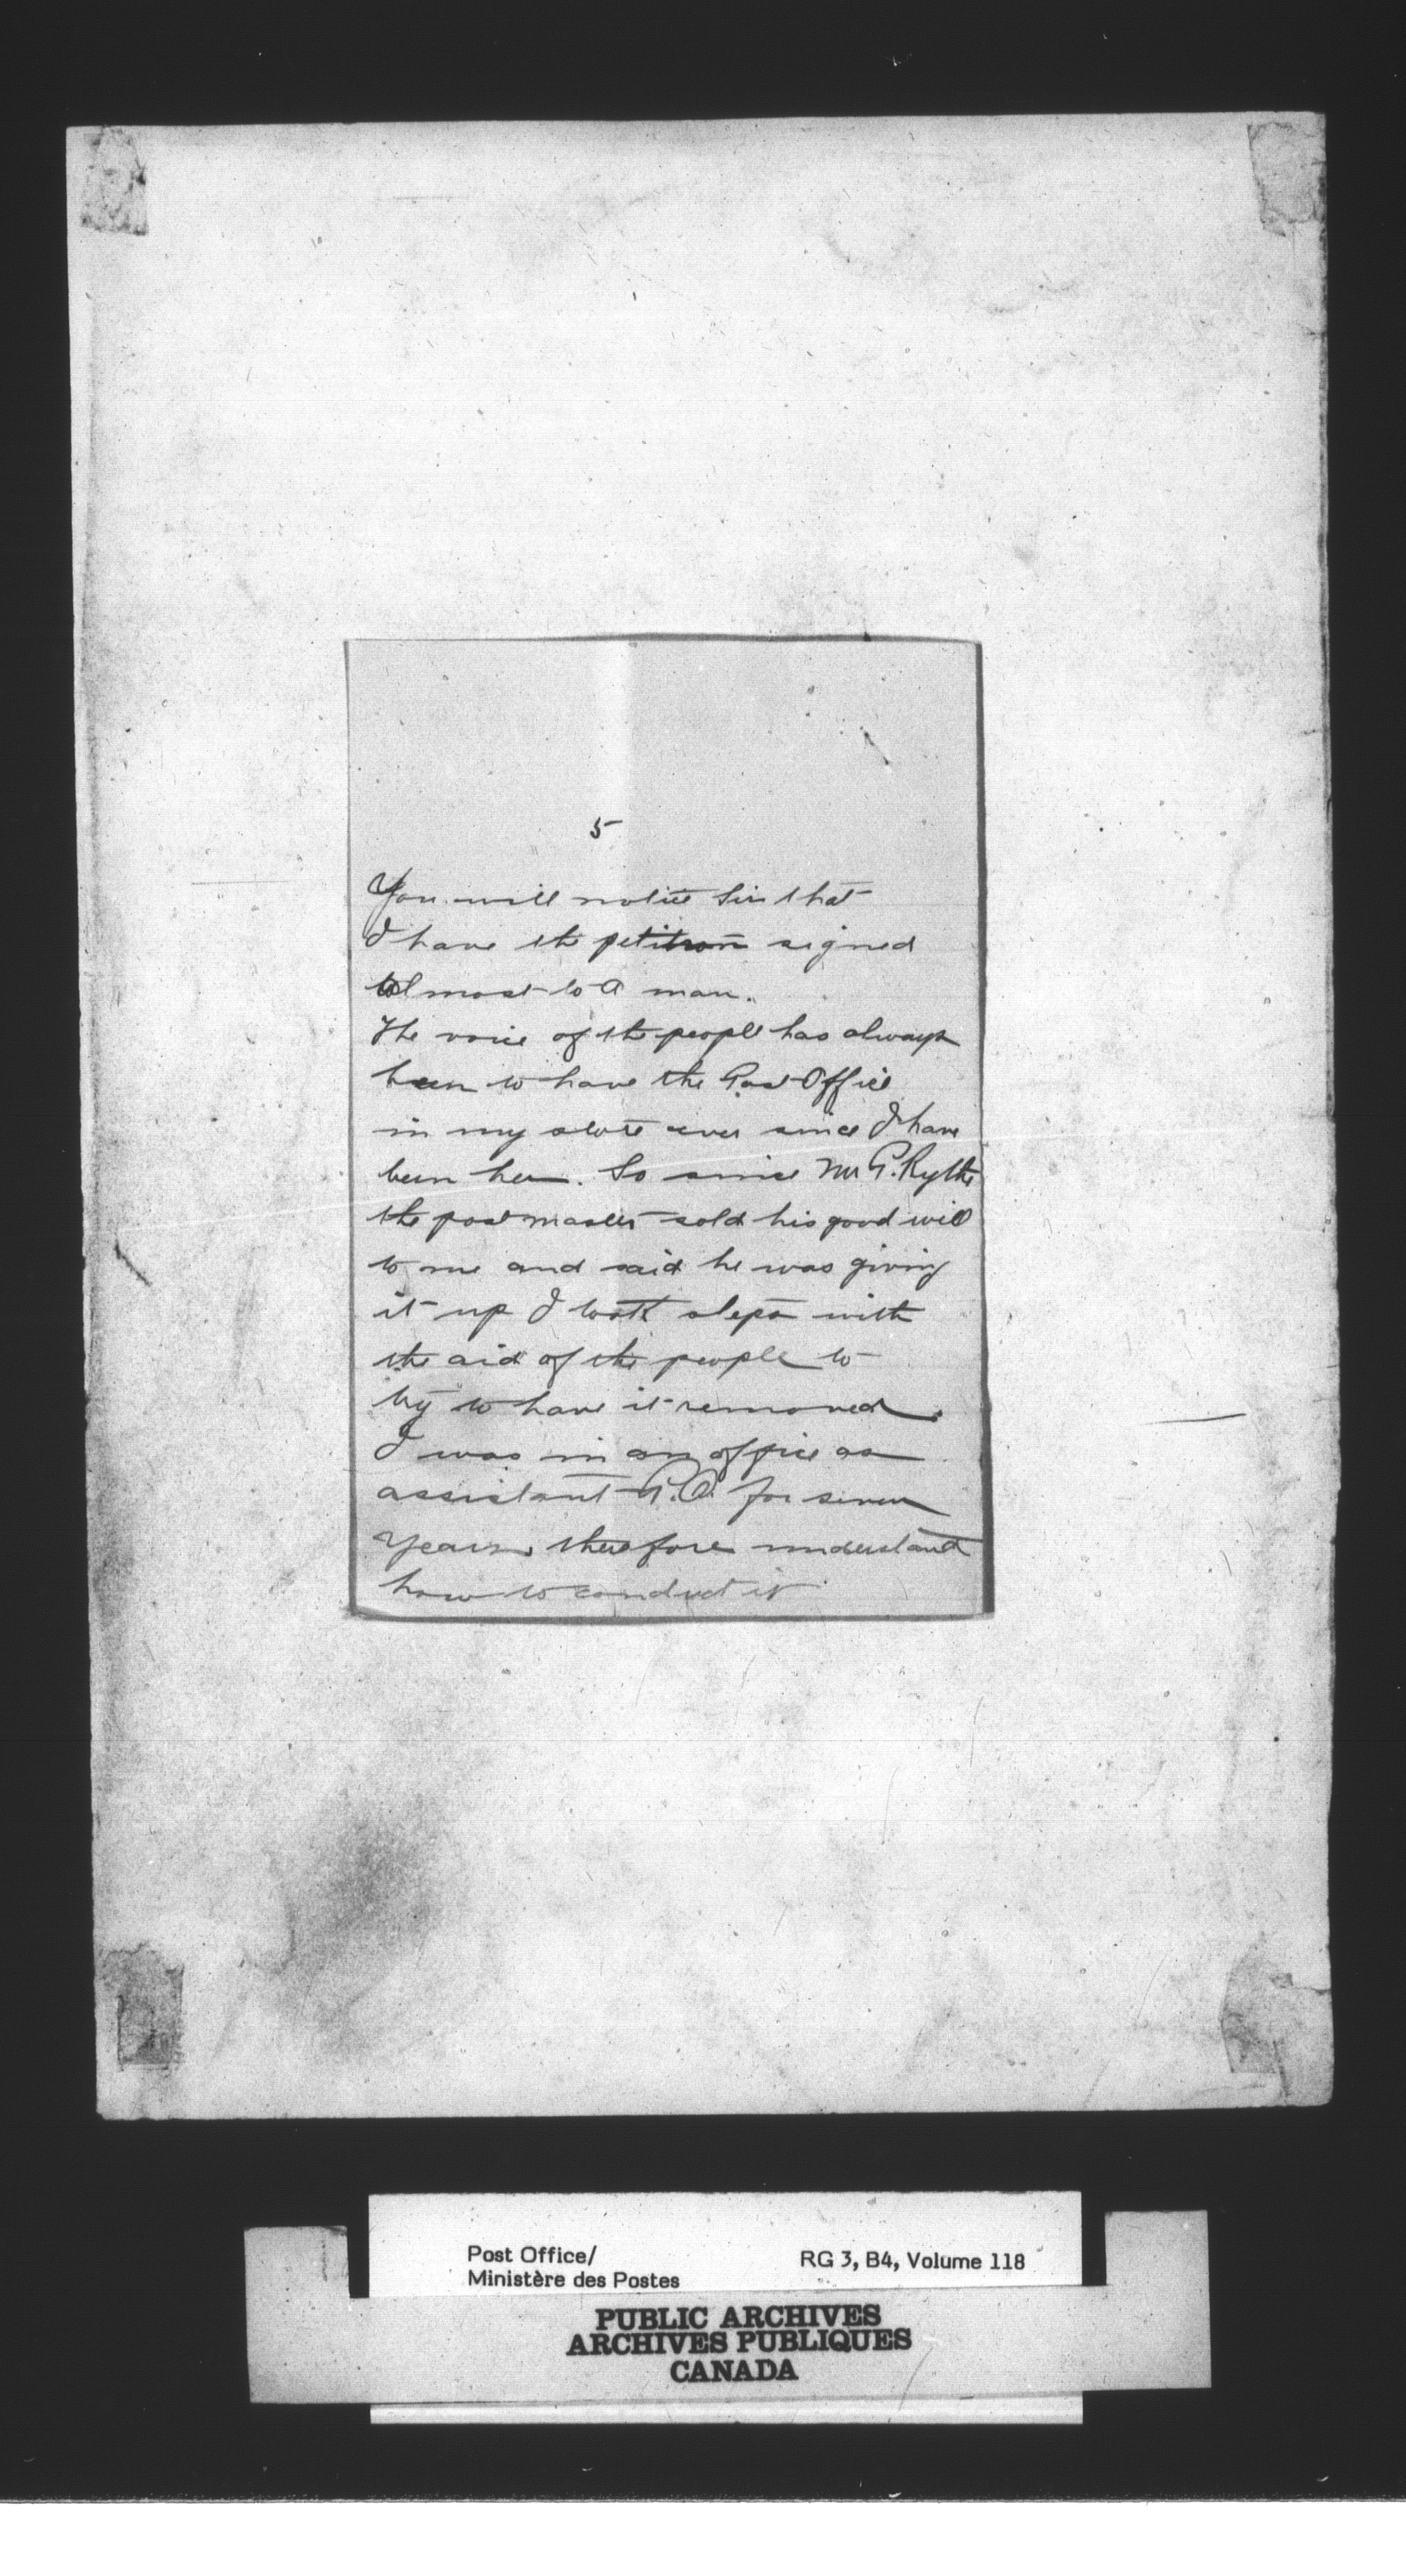 5
You will notice Sir that
I have the petition signed
almost to a man.
The voice of the people has always
been to have the Post Office
in my store ever since I have
been here. So since Mr G. Rylke
the postmaster sold his good will
to me and said he was giving
it up I took steps with
the aid of the people to
try to have it removed.
I was in an office as
assistant P.O. for seven
years, therefore understand
how to conduct it
Post Office/
Ministère des Postes
RG 3, B4, Volume 118
PUBLIC ARCHIVES
ARCHIVES PUBLIQUES
CANADA